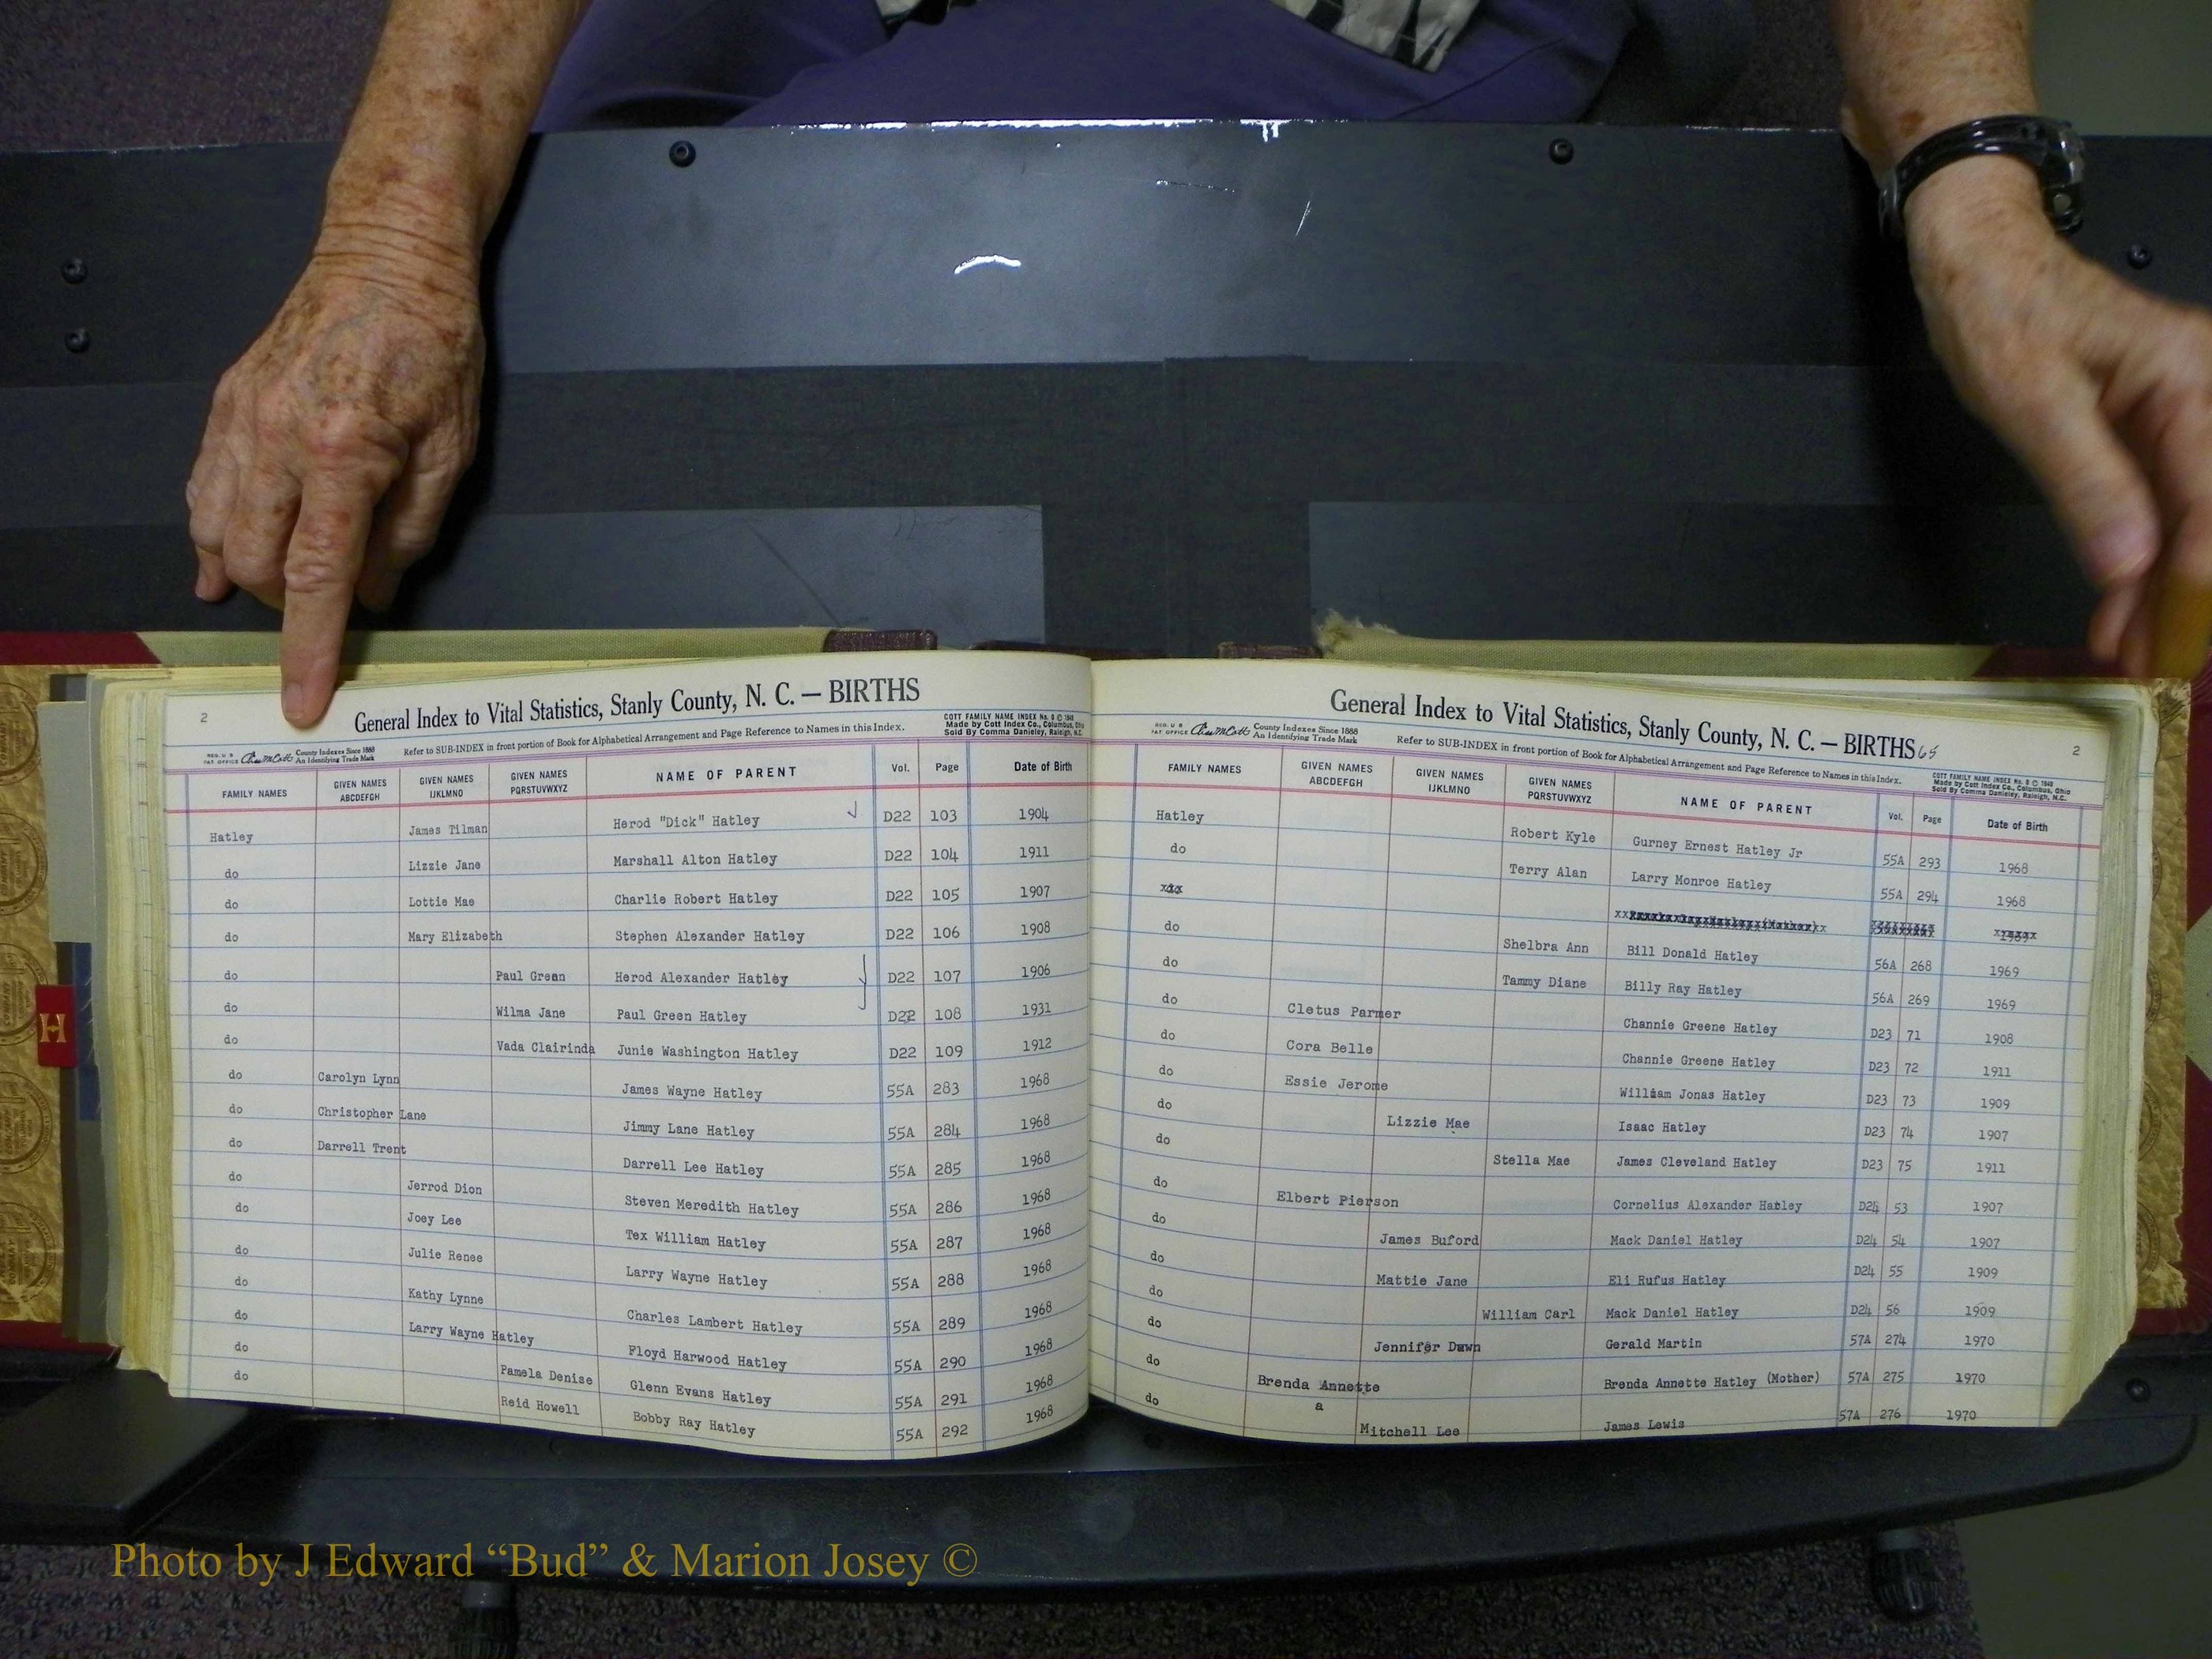 2
General Index to Vital Statistics, Stanly County, N. C. — BIRTHS
REG. U S PAT OFFICE County Indexes Since 1888 An Identifying Trade Mark
Refer to SUB-INDEX in front portion of Book for Alphabetical Arrangement and Page Reference to Names in this Index.
COTT FAMILY NAME INDEX No. 9 © 1948
Made by Cott Index Co., Columbus, Ohio
Sold By Comma Danieley, Raleigh, N.C.
FAMILY NAMES GIVEN NAMES ABCDEFGH GIVEN NAMES IJKLMNO GIVEN NAMES PQRSTUVWXYZ NAME OF PARENT Vol. Page Date of Birth
Hatley James Tilman Herod "Dick" Hatley D22 103 1904
do Lizzie Jane Marshall Alton Hatley D22 104 1911
do Lottie Mae Charlie Robert Hatley D22 105 1907
do Mary Elizabeth Stephen Alexander Hatley D22 106 1908
do Paul Green Herod Alexander Hatley D22 107 1906
do Wilma Jane Paul Green Hatley D22 108 1931
do Vada Clairinda Junie Washington Hatley D22 109 1912
do Carolyn Lynn James Wayne Hatley 55A 283 1968
do Christopher Lane Jimmy Lane Hatley 55A 284 1968
do Darrell Trent Darrell Lee Hatley 55A 285 1968
do Jerrod Dion Steven Meredith Hatley 55A 286 1968
do Joey Lee Tex William Hatley 55A 287 1968
do Julie Renee Larry Wayne Hatley 55A 288 1968
do Kathy Lynne Charles Lambert Hatley 55A 289 1968
do Larry Wayne Hatley Floyd Harwood Hatley 55A 290 1968
do Pamela Denise Glenn Evans Hatley 55A 291 1968
do Reid Howell Bobby Ray Hatley 55A 292 1968
General Index to Vital Statistics, Stanly County, N. C. — BIRTHS 65
2
REG. U S PAT OFFICE County Indexes Since 1888 An Identifying Trade Mark
Refer to SUB-INDEX in front portion of Book for Alphabetical Arrangement and Page Reference to Names in this Index.
COTT FAMILY NAME INDEX No. 9 © 1948
Made by Cott Index Co., Columbus, Ohio
Sold By Comma Danieley, Raleigh, N.C.
FAMILY NAMES GIVEN NAMES ABCDEFGH GIVEN NAMES IJKLMNO GIVEN NAMES PQRSTUVWXYZ NAME OF PARENT Vol. Page Date of Birth
Hatley Robert Kyle Gurney Ernest Hatley Jr 55A 293 1968
do Terry Alan Larry Monroe Hatley 55A 294 1968
xxx
do Shelbra Ann Bill Donald Hatley 56A 268 1969
do Tammy Diane Billy Ray Hatley 56A 269 1969
do Cletus Parmer Channie Greene Hatley D23 71 1908
do Cora Belle Channie Greene Hatley D23 72 1911
do Essie Jerome William Jonas Hatley D23 73 1909
do Lizzie Mae Isaac Hatley D23 74 1907
do Stella Mae James Cleveland Hatley D23 75 1911
do Elbert Pierson Cornelius Alexander Hatley D24 53 1907
do James Buford Mack Daniel Hatley D24 54 1907
do Mattie Jane Eli Rufus Hatley D24 55 1909
do William Carl Mack Daniel Hatley D24 56 1909
do Jennifer Dawn Gerald Martin 57A 274 1970
do Brenda Annette Brenda Annette Hatley (Mother) 57A 275 1970
a
do Mitchell Lee James Lewis 57A 276 1970
H
Photo by J Edward “Bud” & Marion Josey ©